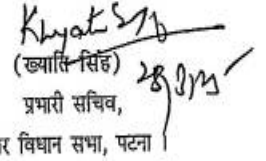 Khyati Singh
(ख्याति सिंह)
प्रभारी सचिव,
र विधान सभा, पटना ।